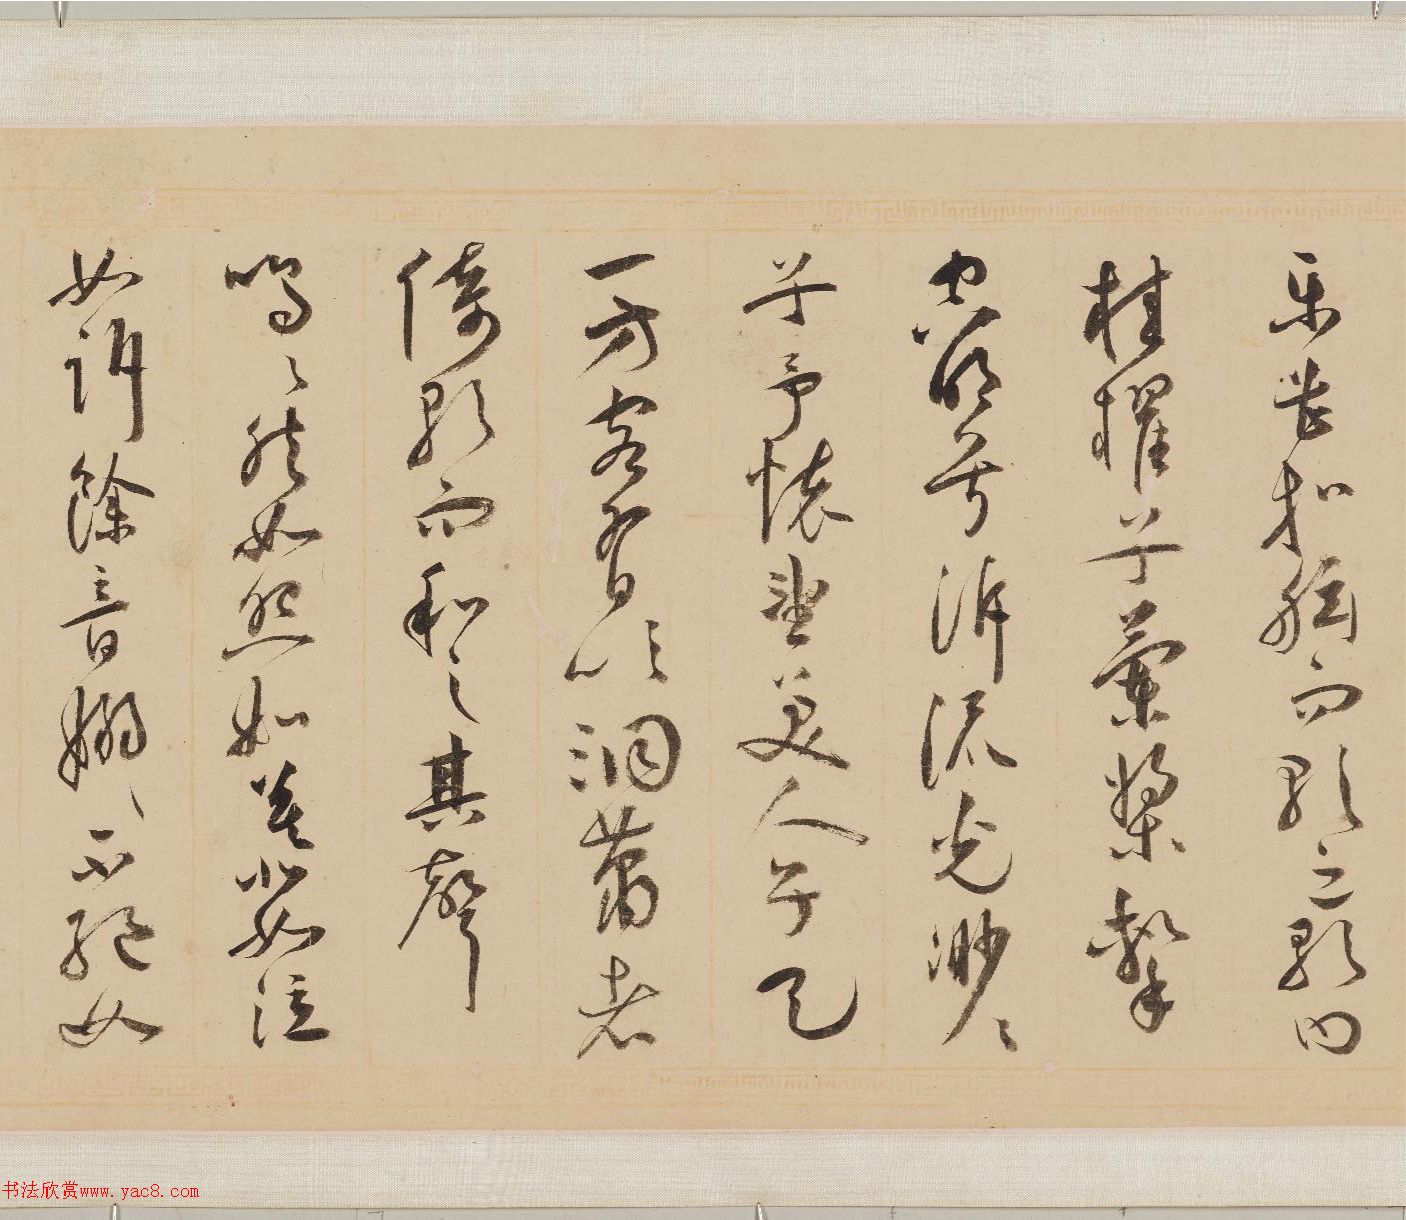 樂甚扣舷而歌之歌曰
桂櫂兮蘭槳擊
空明兮泝流光渺々
兮予懷望美人兮天
一方客有吹洞簫者
倚歌而和之其聲
嗚々然如怨如慕如泣
如訴餘音嫋々不絕如
书法欣赏www.yac8.com